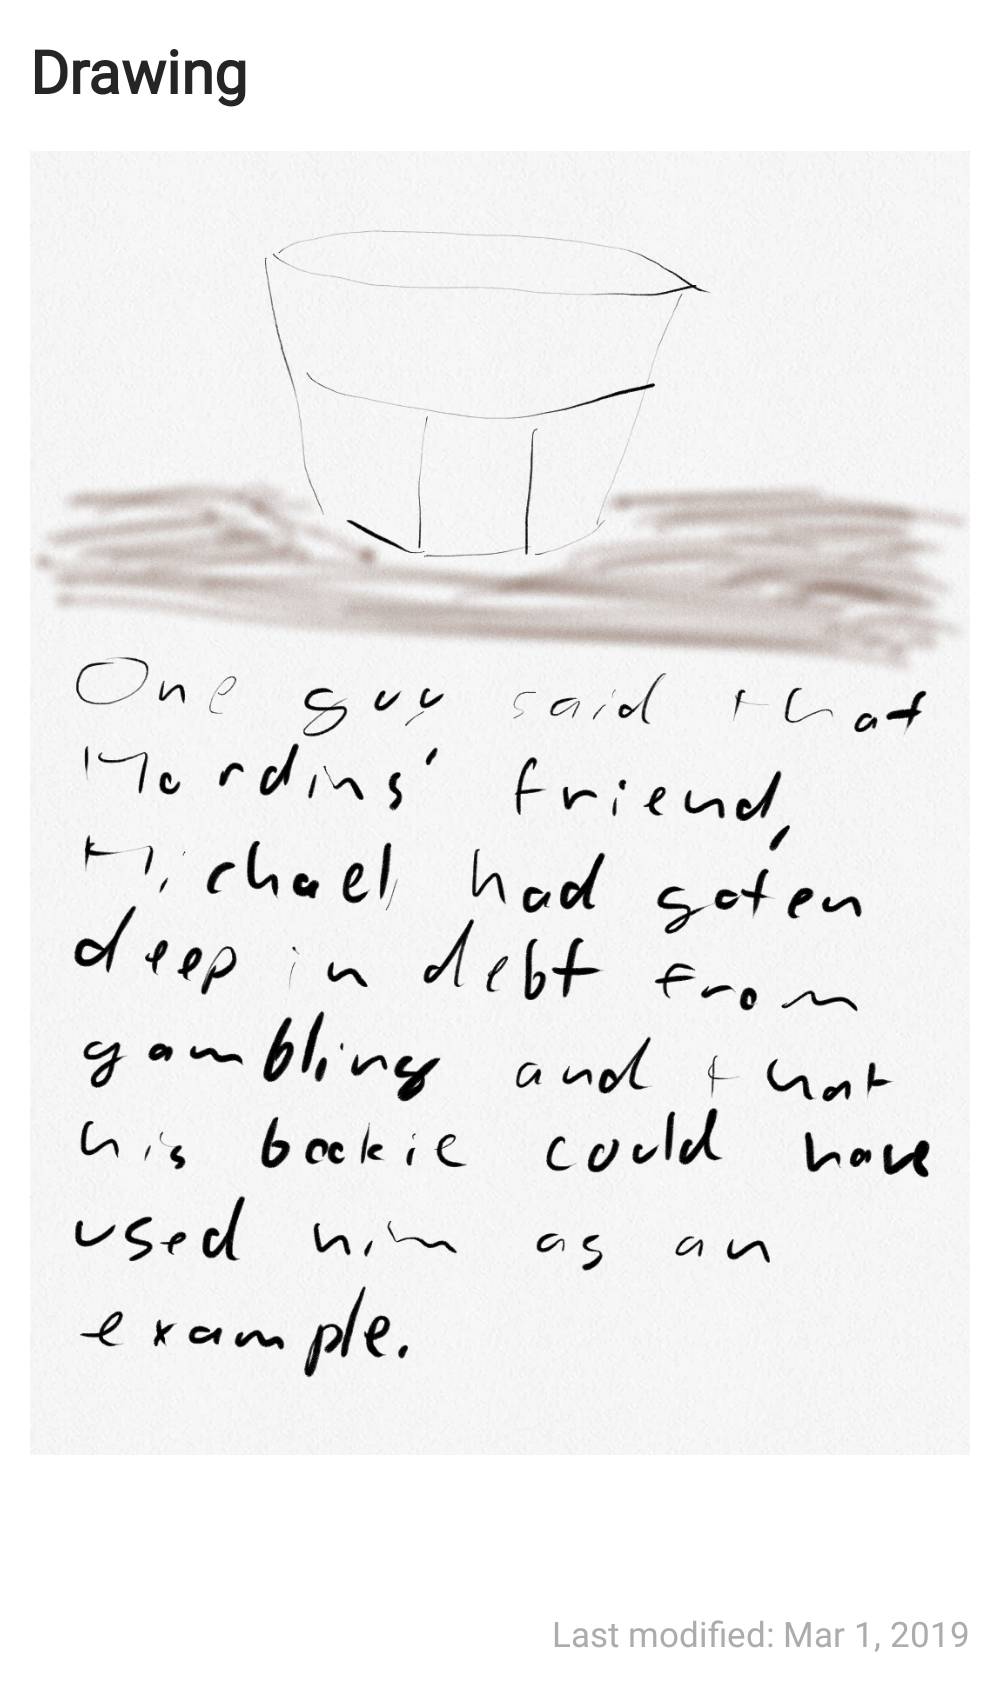 Drawing
One guy said that
Mardins' friend,
Michael, had goten
deep in debt from
gambling and that
his bookie could have
used him as an
example.
Last modified: Mar 1, 2019